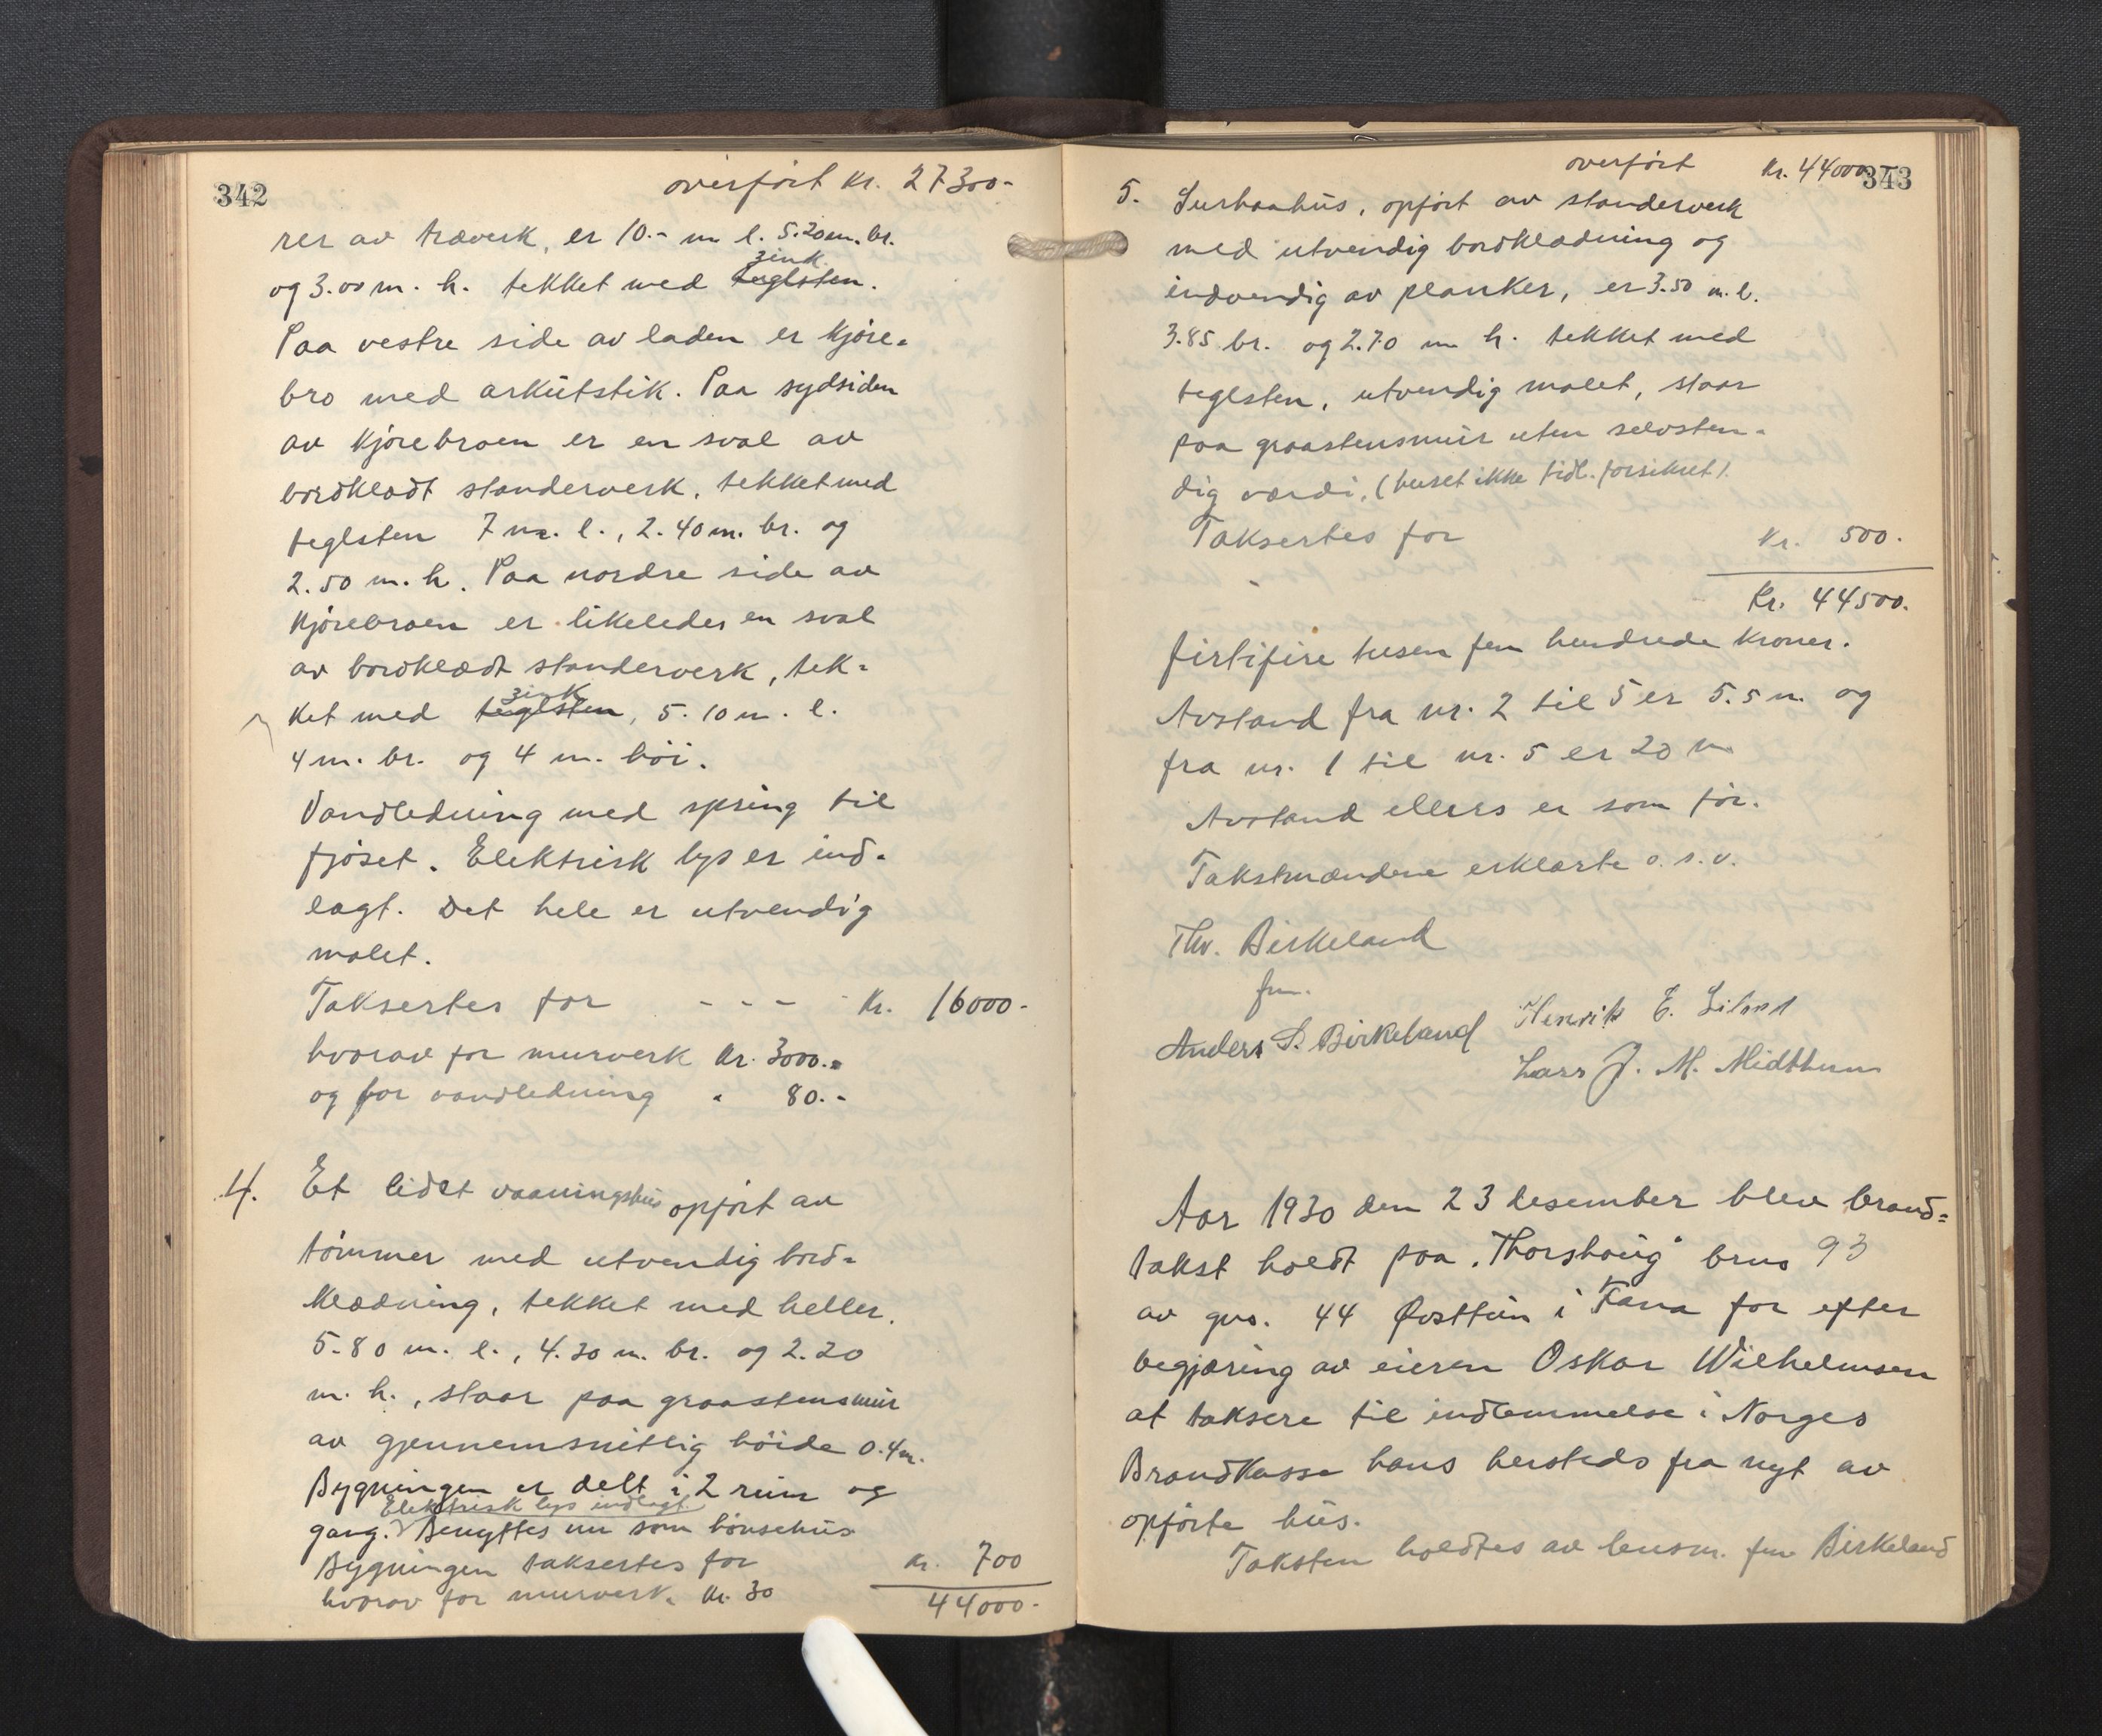 342
overført Kr. 27300-
rer av træverk, er 10.- m l. 5.20 m. br.
zink
og 3.00 m. h. tekket med teglsten.
Paa vestre side av laden er kjøre-
bro med arkutstik. Paa sydsiden
av kjørebroen er en sval av
bordklædt standerverk, tekket med
teglsten 7 m. l., 2.40 m. br. og
2.50 m. h. Paa nordre side av
kjørebroen er likeledes en sval
av bordklædt standerverk, tek-
zink
ket med teglsten, 5.10 m. l.
4 m. br. og 4 m. høi.
Vandledning med spring til
fjøset. Elektrisk lys er ind-
lagt. Det hele er utvendig
malet.
Taksertes for - - - - Kr. 16000-
hvorav for murverk Kr. 3000.-
og for vandledning " 80.-
4. Et lidet vaaningshus opført av
tømmer med utvendig bord-
klædning, tekket med heller.
5.80 m. l., 4.30 m. br. og 2.20
m. h., staar paa graastensmur
av gjennemsnitlig høide 0.4 m.
Bygningen er delt i 2 rum og
Elektrisk lys indlagt.
gang. Benyttes nu som hønsehus
Bygningen taksertes for Kr. 700
hvorav for murverk Kr. 30
44000-
343
overført Kr. 44000
5. Surhaahus, opført av standerverk
med utvendig bordklædning og
indvendig av planker, er 3.50 m. l.
3.85 br. og 2.70 m h. tekket med
teglsten, utvendig malet, staar
paa graastensmur uten selvsten-
dig værdi, (huset ikke tidl. forsikret).
Taksertes for Kr. 500.
Kr. 44500.
firtifire tusen fem hundrede kroner.
Avstand fra nr. 2 til 5 er 5.5 m. og
fra nr. 1 til nr. 5 er 20 m
Avstand ellers er som før.
Takstmændene erklærte o. s. v.
Thv. Birkeland
fm.
Anders S. Birkeland Henrik E.
Lars J. M. Midttun
Aar 1930 den 23 desember blev brand-
takst holdt paa "Thorshaug" brno 93
av gno. 44 Østtun i Fana for efter
begjæring av eieren Oskar Wilhelmsen
at taksere til indlemmelse i Norges
Brandkasse hans hersteds fra nyt av
opførte hus.
Taksten holdtes av lensm. fm Birkeland